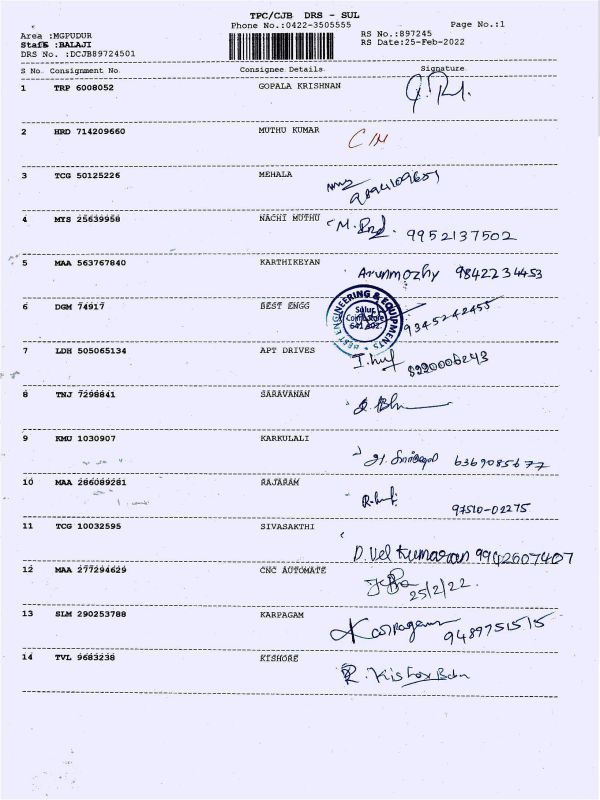 TPC/CJB DRS - SUL
Phone No.:0422-3505555 Page No.:1
Area :MGPUDUR RS No.:897245
Staff :BALAJI RS Date:25-Feb-2022
DRS No. :DCJB89724501
S No. Consignment No Consignee Details Signature
1 TRP 6008052 GOPALA KRISHNAN
2 HRD 714209660 MUTHU KUMAR
3 TCG 50125226 MEHALA
4 MYS 25639958 NACHI MUTHU 9952137502
5 MAA 563767840 KARTHIKEYAN Arunmozhy 9842234453
6 DGM 74917 BEST ENGG 9345242455
BEST ENGINEERING & EQUIPMENTS
Sulur,
Coimbatore
641 402.
7 LDH 505065134 APT DRIVES 8220006243
8 TNJ 7298841 SARAVANAN
9 KMU 1030907 KARKULALI 6369085677
10 MAA 286089281 RAJARAM 97510-02275
11 TCG 10032595 SIVASAKTHI D. Vel Kumaran 9942607407
12 MAA 277294629 CNC AUTOMATE 25/2/22.
13 SLM 290253788 KARPAGAM Karpagam 9489751515
14 TVL 9683238 KISHORE